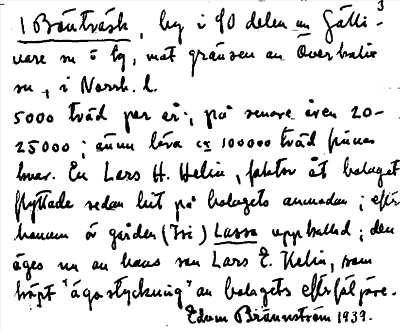 3
1 Bäutträsk, by i SO delen av Gälli-
vare sn o tg, mot gränsen av Överkalix
sn, i Norrb. l.
5000 träd per år; på senare även 20-
25000; ännu lära ca 100000 träd finnas
kvar. En Lars H. Helin, faktor åt bolaget
flyttade sedan hit på bolagets anmodan; efter
honom är gården (Tri) Lassa uppkallad; den
äges nu av hans son Lars E. Helin, som
köpt "ägostyckning" av bolagets efterföljare.
Edvin Brännström 1939.